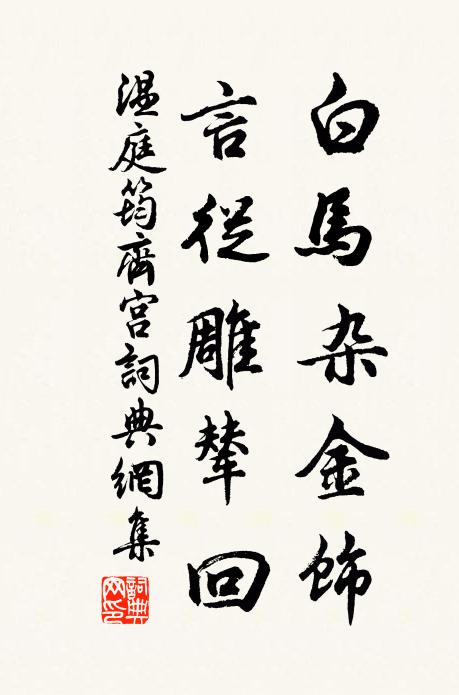 白馬杂金飾
言從雕輦回
温庭筠齊宮詞典網集
詞典网印